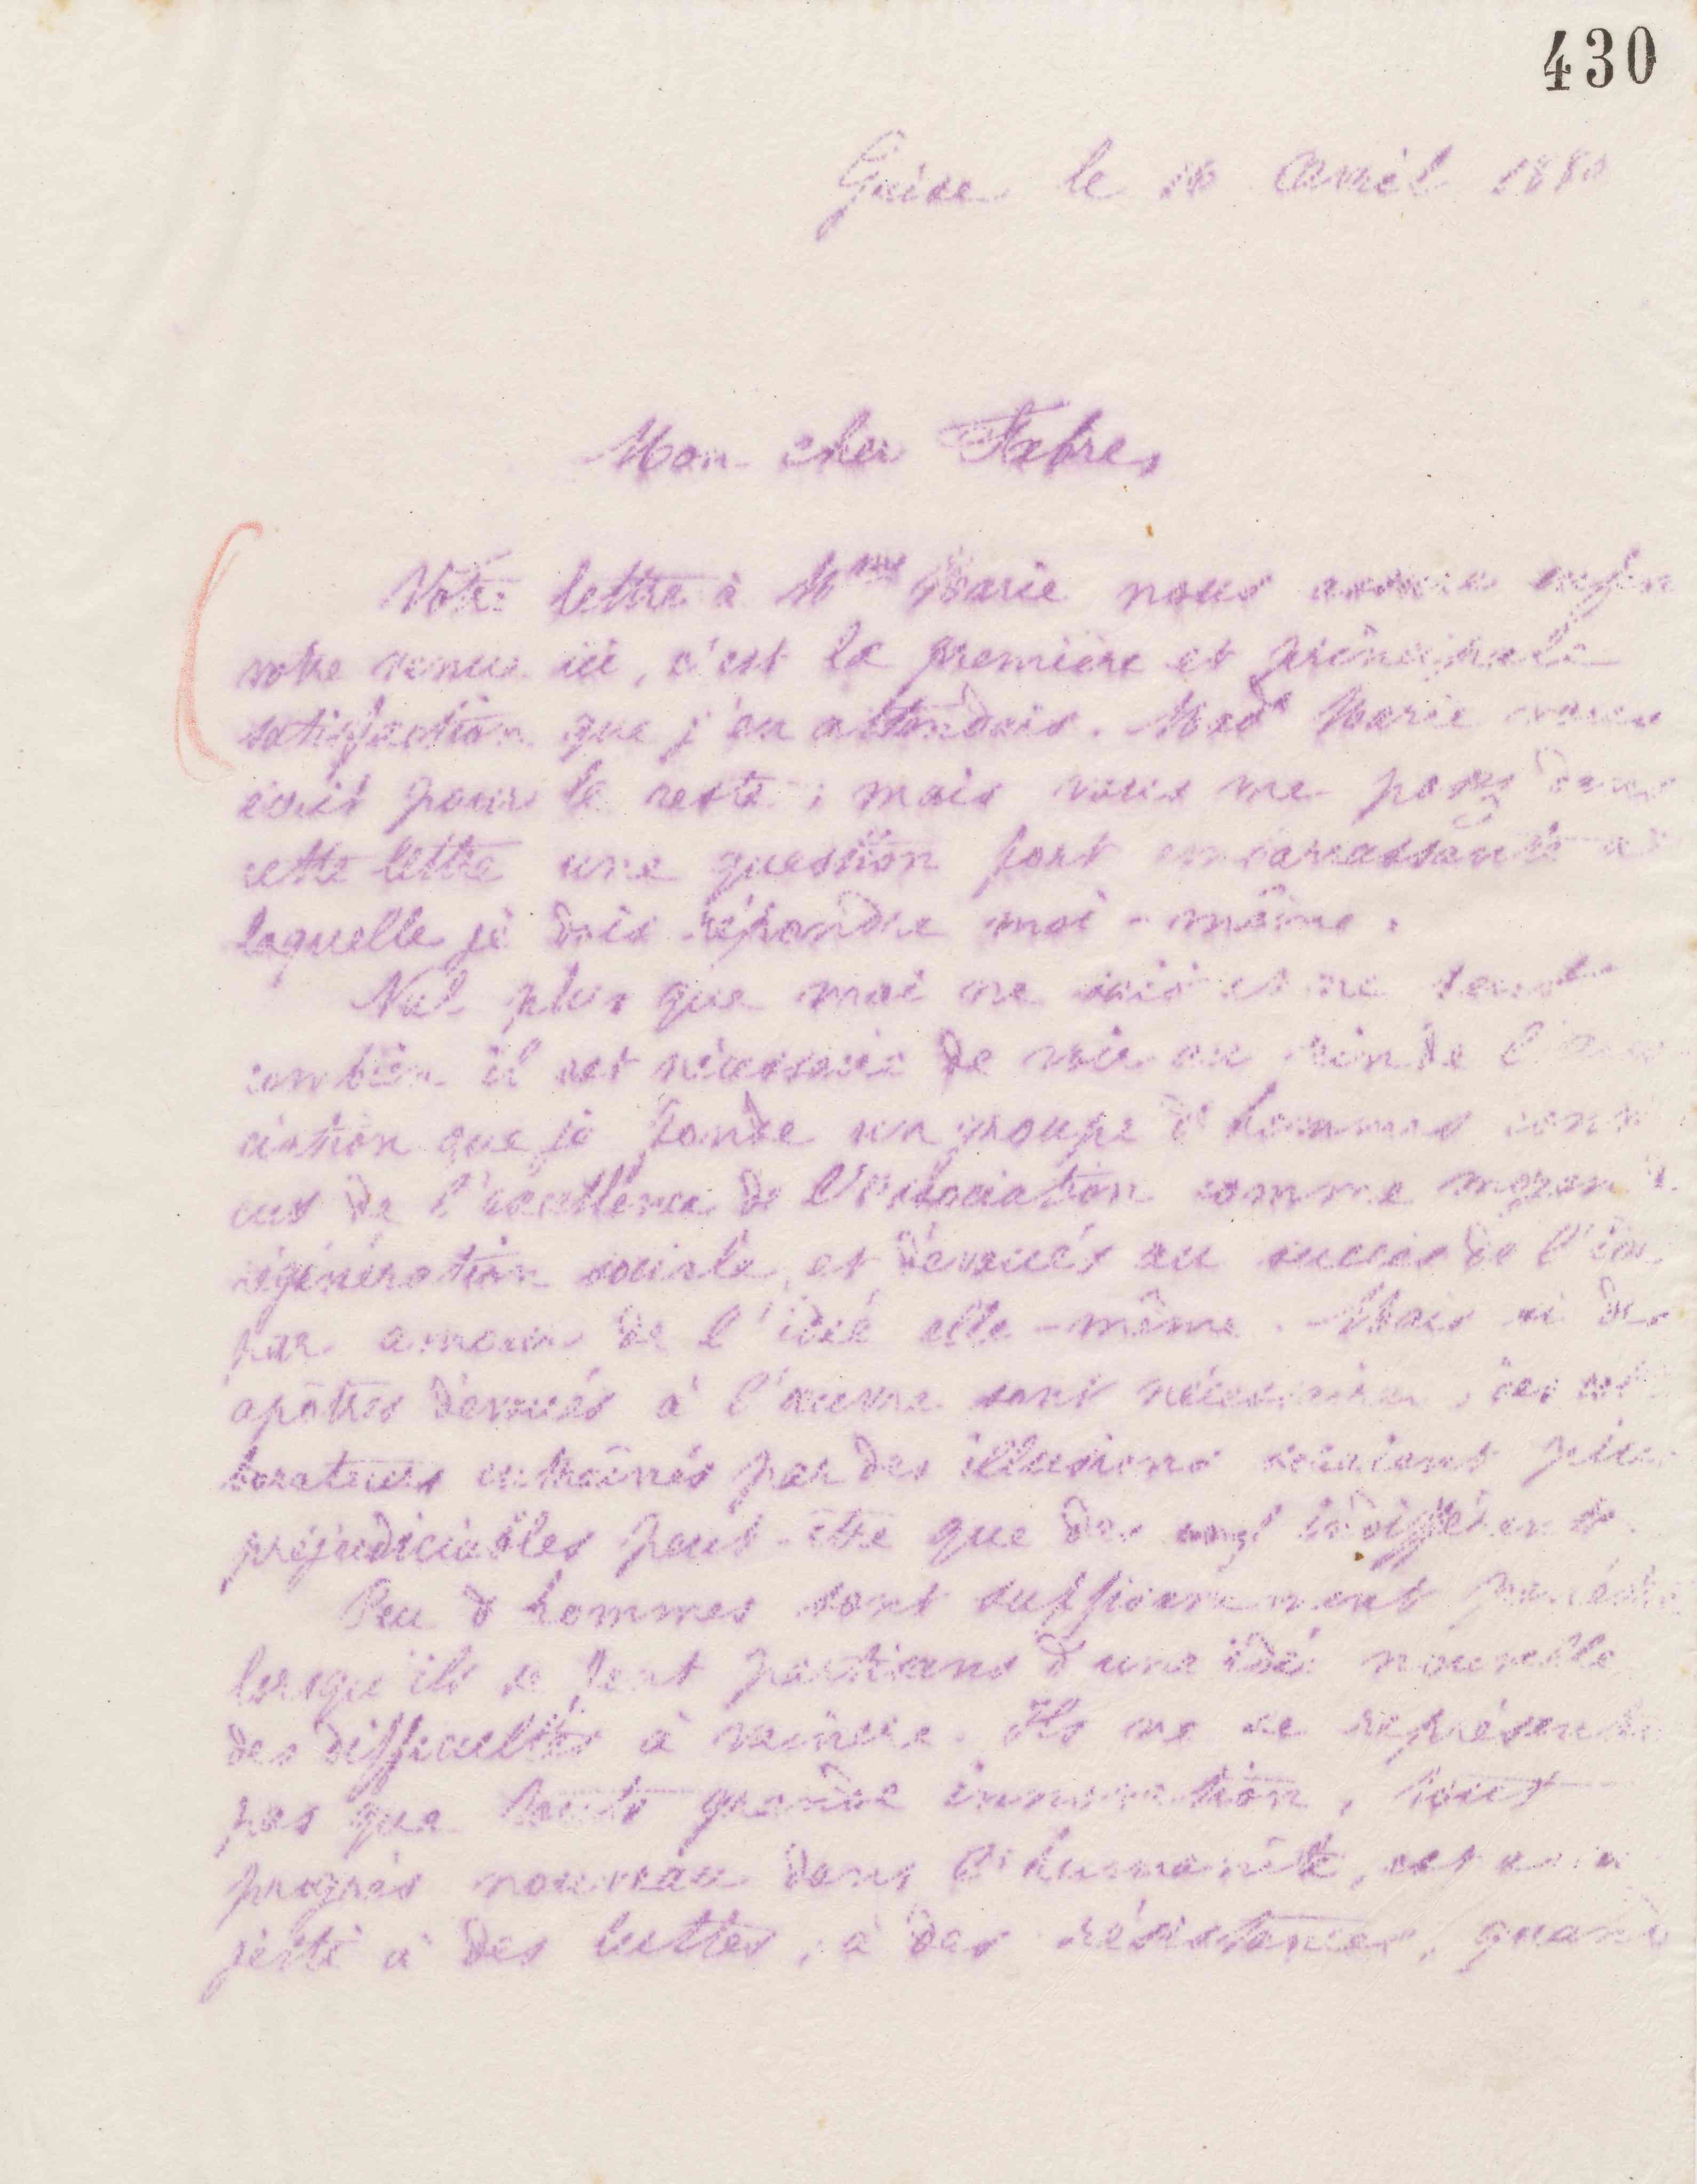 430
Guise le 10 Avril 1880
Mon cher Fabre,
Votre lettre à Mme Marie nous assure enfin
votre venue ici, c'est la première et principale
satisfaction que j'en attendais. Made Marie vous
écrit pour le reste ; mais vous me posez dans
cette lettre une question fort embarrassante à
laquelle je dois répondre moi-même.
Nul plus que moi ne sait et ne sent
combien il est nécessaire de voir au sein de l'asso
ciation que je fonde un groupe d'hommes convain
cus de l'excellence de l'association comme moyen de
régénération sociale, et dévoués au succès de l'idée
par amour de l'idée elle-même. Mais si des
apôtres dévoués à l'œuvre sont nécessaires, des colla
borateurs entraînés par des illusions seraient plus
préjudiciables peut-être que des indifférents.
Peu d'hommes sont suffisamment pénétrés
lorsqu'ils se font partisans d'une idée nouvelle
des difficultés à vaincre. Ils ne se représentent
pas que toute grande innovation, tout
progrès nouveau dans l'humanité, est assu
jetti à des luttes, à des résistances, quand